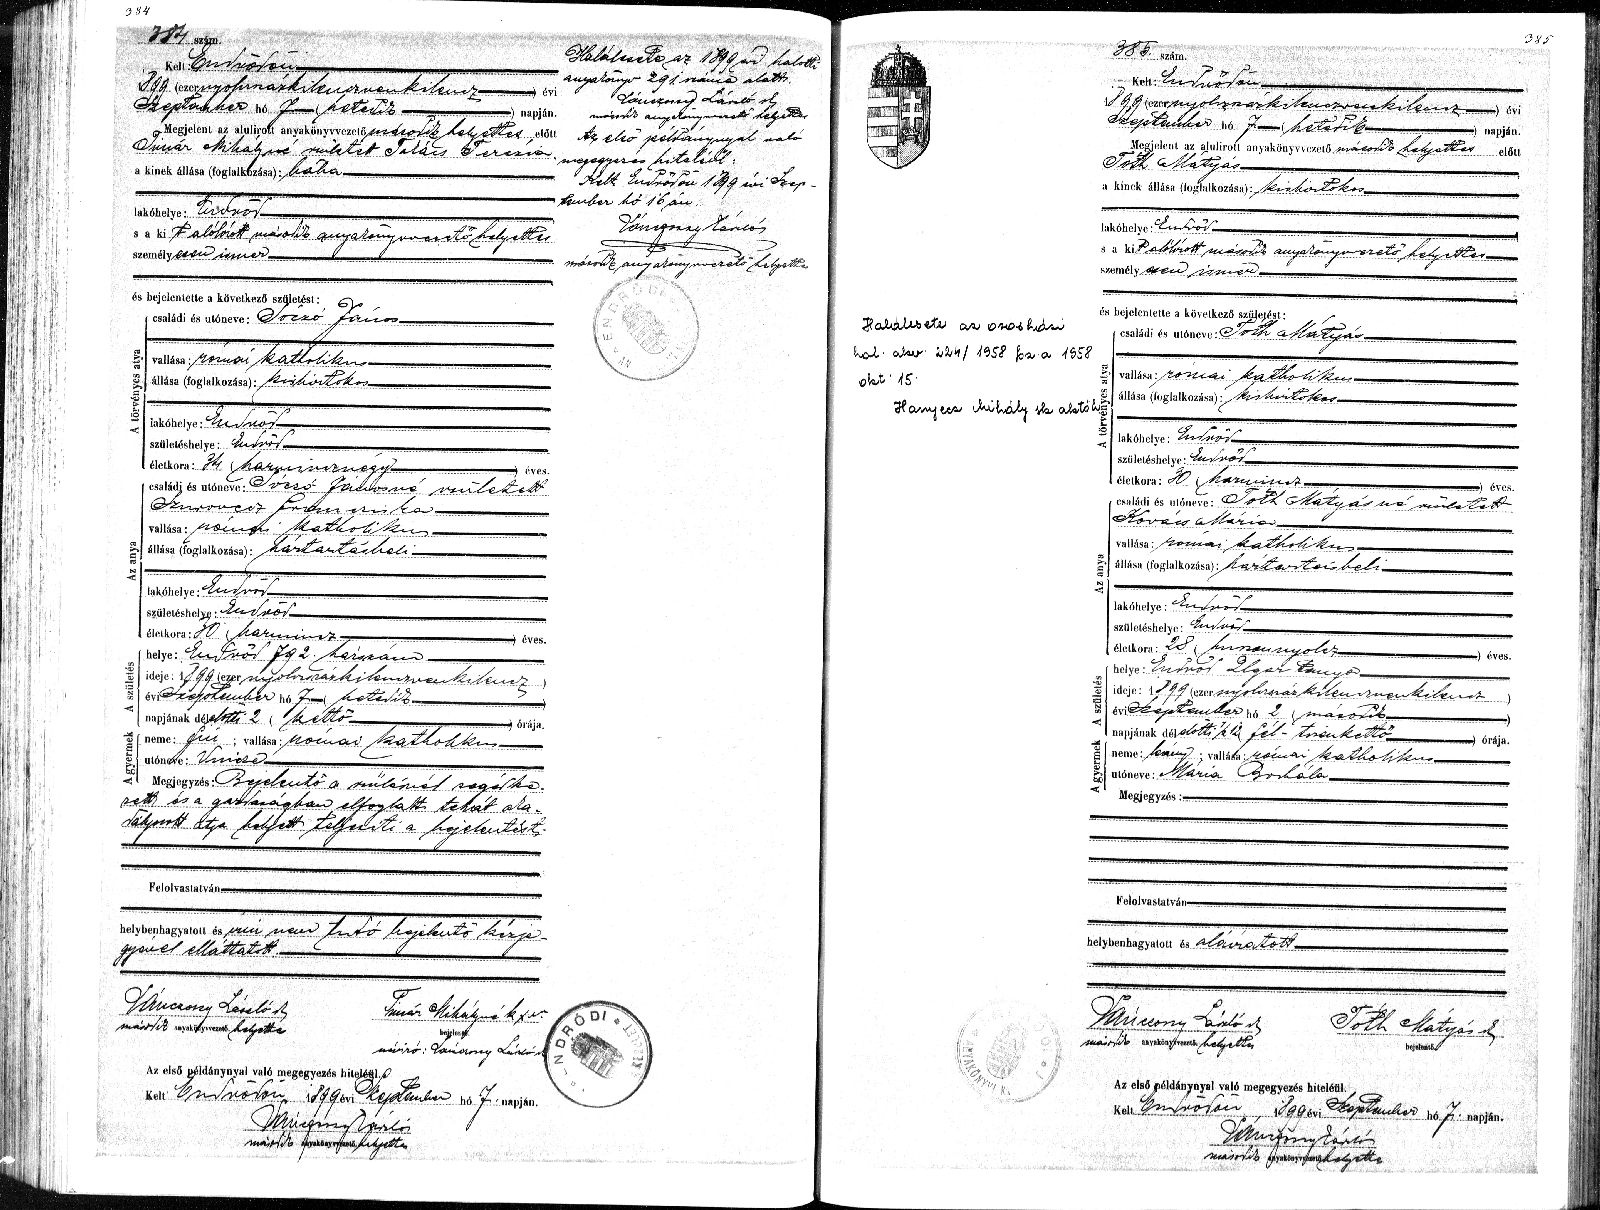 384
384 szám.
Kelt: Endrődön
1899 (ezernyolczszázkilenczvenkilencz) évi
Szeptember hó 7 (hetedik) napján.
Megjelent az alulirott anyakönyvvezető második helyettes előtt
Timár Mihályné született Takács Terézia
a kinek állása (foglalkozása): bába
lakóhelye: Endrőd
s a kit alólirott második anyakönyvvezető helyettes
személyesen ismer
és bejelentette a következő születést:
A törvényes atya
családi és utóneve: Soczó János
vallása: római katholikus
állása (foglalkozása): kisbirtokos
lakóhelye: Endrőd
születéshelye: Endrőd
életkora: 34 (harmincznégy) éves.
Az anya
családi és utóneve: Soczó Jánosné született
vallása: római katholikus
állása (foglalkozása): háztartásbeli
lakóhelye: Endrőd
születéshelye: Endrőd
életkora: 30 (harmincz) éves.
A születés
helye: Endrőd 792 házszám
ideje: 1899 (ezernyolczszázkilenczvenkilencz)
évi Szeptember hó 7 (hetedik)
napjának délelőtti 2 (kettő) órája.
A gyermek
neme: fiú; vallása: római katholikus
utóneve: Vincze
Megjegyzés: Bejelentő a szülésnél segédke-
zett és a gazdaságban elfoglalt tehát aka-
dályozott atya helyett teljesiti a bejelentést.
Felolvastatván
helybenhagyatott és irni nem tudó bejelentő kézje-
gyével elláttatott.
Vánczony László sk
második anyakönyvvezető helyettes
Timár Mihályné k x v.
bejelentő.
névíró: Vánczony László sk
Az első példánynyal való megegyezés hiteléül.
Kelt Endrődön, 1899 évi Szeptember hó 7. napján.
Vánczony László
második anyakönyvvezető helyettes
Halálesete az 1899 évi halotti
anyakönyv 291 száma alatt.
Vánczony László sk
második anyakönyvvezető helyettes
Az első példánynyal való
megegyezés hiteléül:
Kelt Endrődön 1899 évi Szep-
tember hó 16 án.
Vánczony László
második anyakönyvvezető helyettes
ENDRŐDI
ENDRŐDI
385
385 szám.
Kelt: Endrődön
1899 (ezernyolczszázkilenczvenkilencz) évi
Szeptember hó 7 (hetedik) napján.
Megjelent az alulirott anyakönyvvezető második helyettes előtt
Tóth Mátyás
a kinek állása (foglalkozása): kisbirtokos
lakóhelye: Endrőd
s a kit alólirott második anyakönyvvezető helyettes
személyesen ismer
és bejelentette a következő születést:
A törvényes atya
családi és utóneve: Tóth Mátyás
vallása: római katholikus
állása (foglalkozása): kisbirtokos
lakóhelye: Endrőd
születéshelye: Endrőd
életkora: 30 (harmincz) éves.
Az anya
családi és utóneve: Tóth Mátyásné született
Kovács Mária
vallása: római katholikus
állása (foglalkozása): háztartásbeli
lakóhelye: Endrőd
születéshelye: Endrőd
életkora: 28 (huszonnyolcz) éves.
A születés
helye: Endrőd tanya
ideje: 1899 (ezernyolczszázkilenczvenkilencz)
évi Szeptember hó 2 (második)
napjának délelőtti fél-tizenkettő órája.
A gyermek
neme: leány; vallása: római katholikus
utóneve: Mária Borbála
Megjegyzés:
Felolvastatván
helybenhagyatott és aláiratott
Vánczony László sk
második anyakönyvvezető helyettes
Tóth Mátyás sk
bejelentő.
Az első példánynyal való megegyezés hiteléül.
Kelt Endrődön, 1899 évi Szeptember hó 7. napján.
Vánczony László
második anyakönyvvezető helyettes
Halálesete az orosházi
hal. akv. 224/1958 fsz a 1958
okt. 15.
Hanyecz Mihály sk aktóh